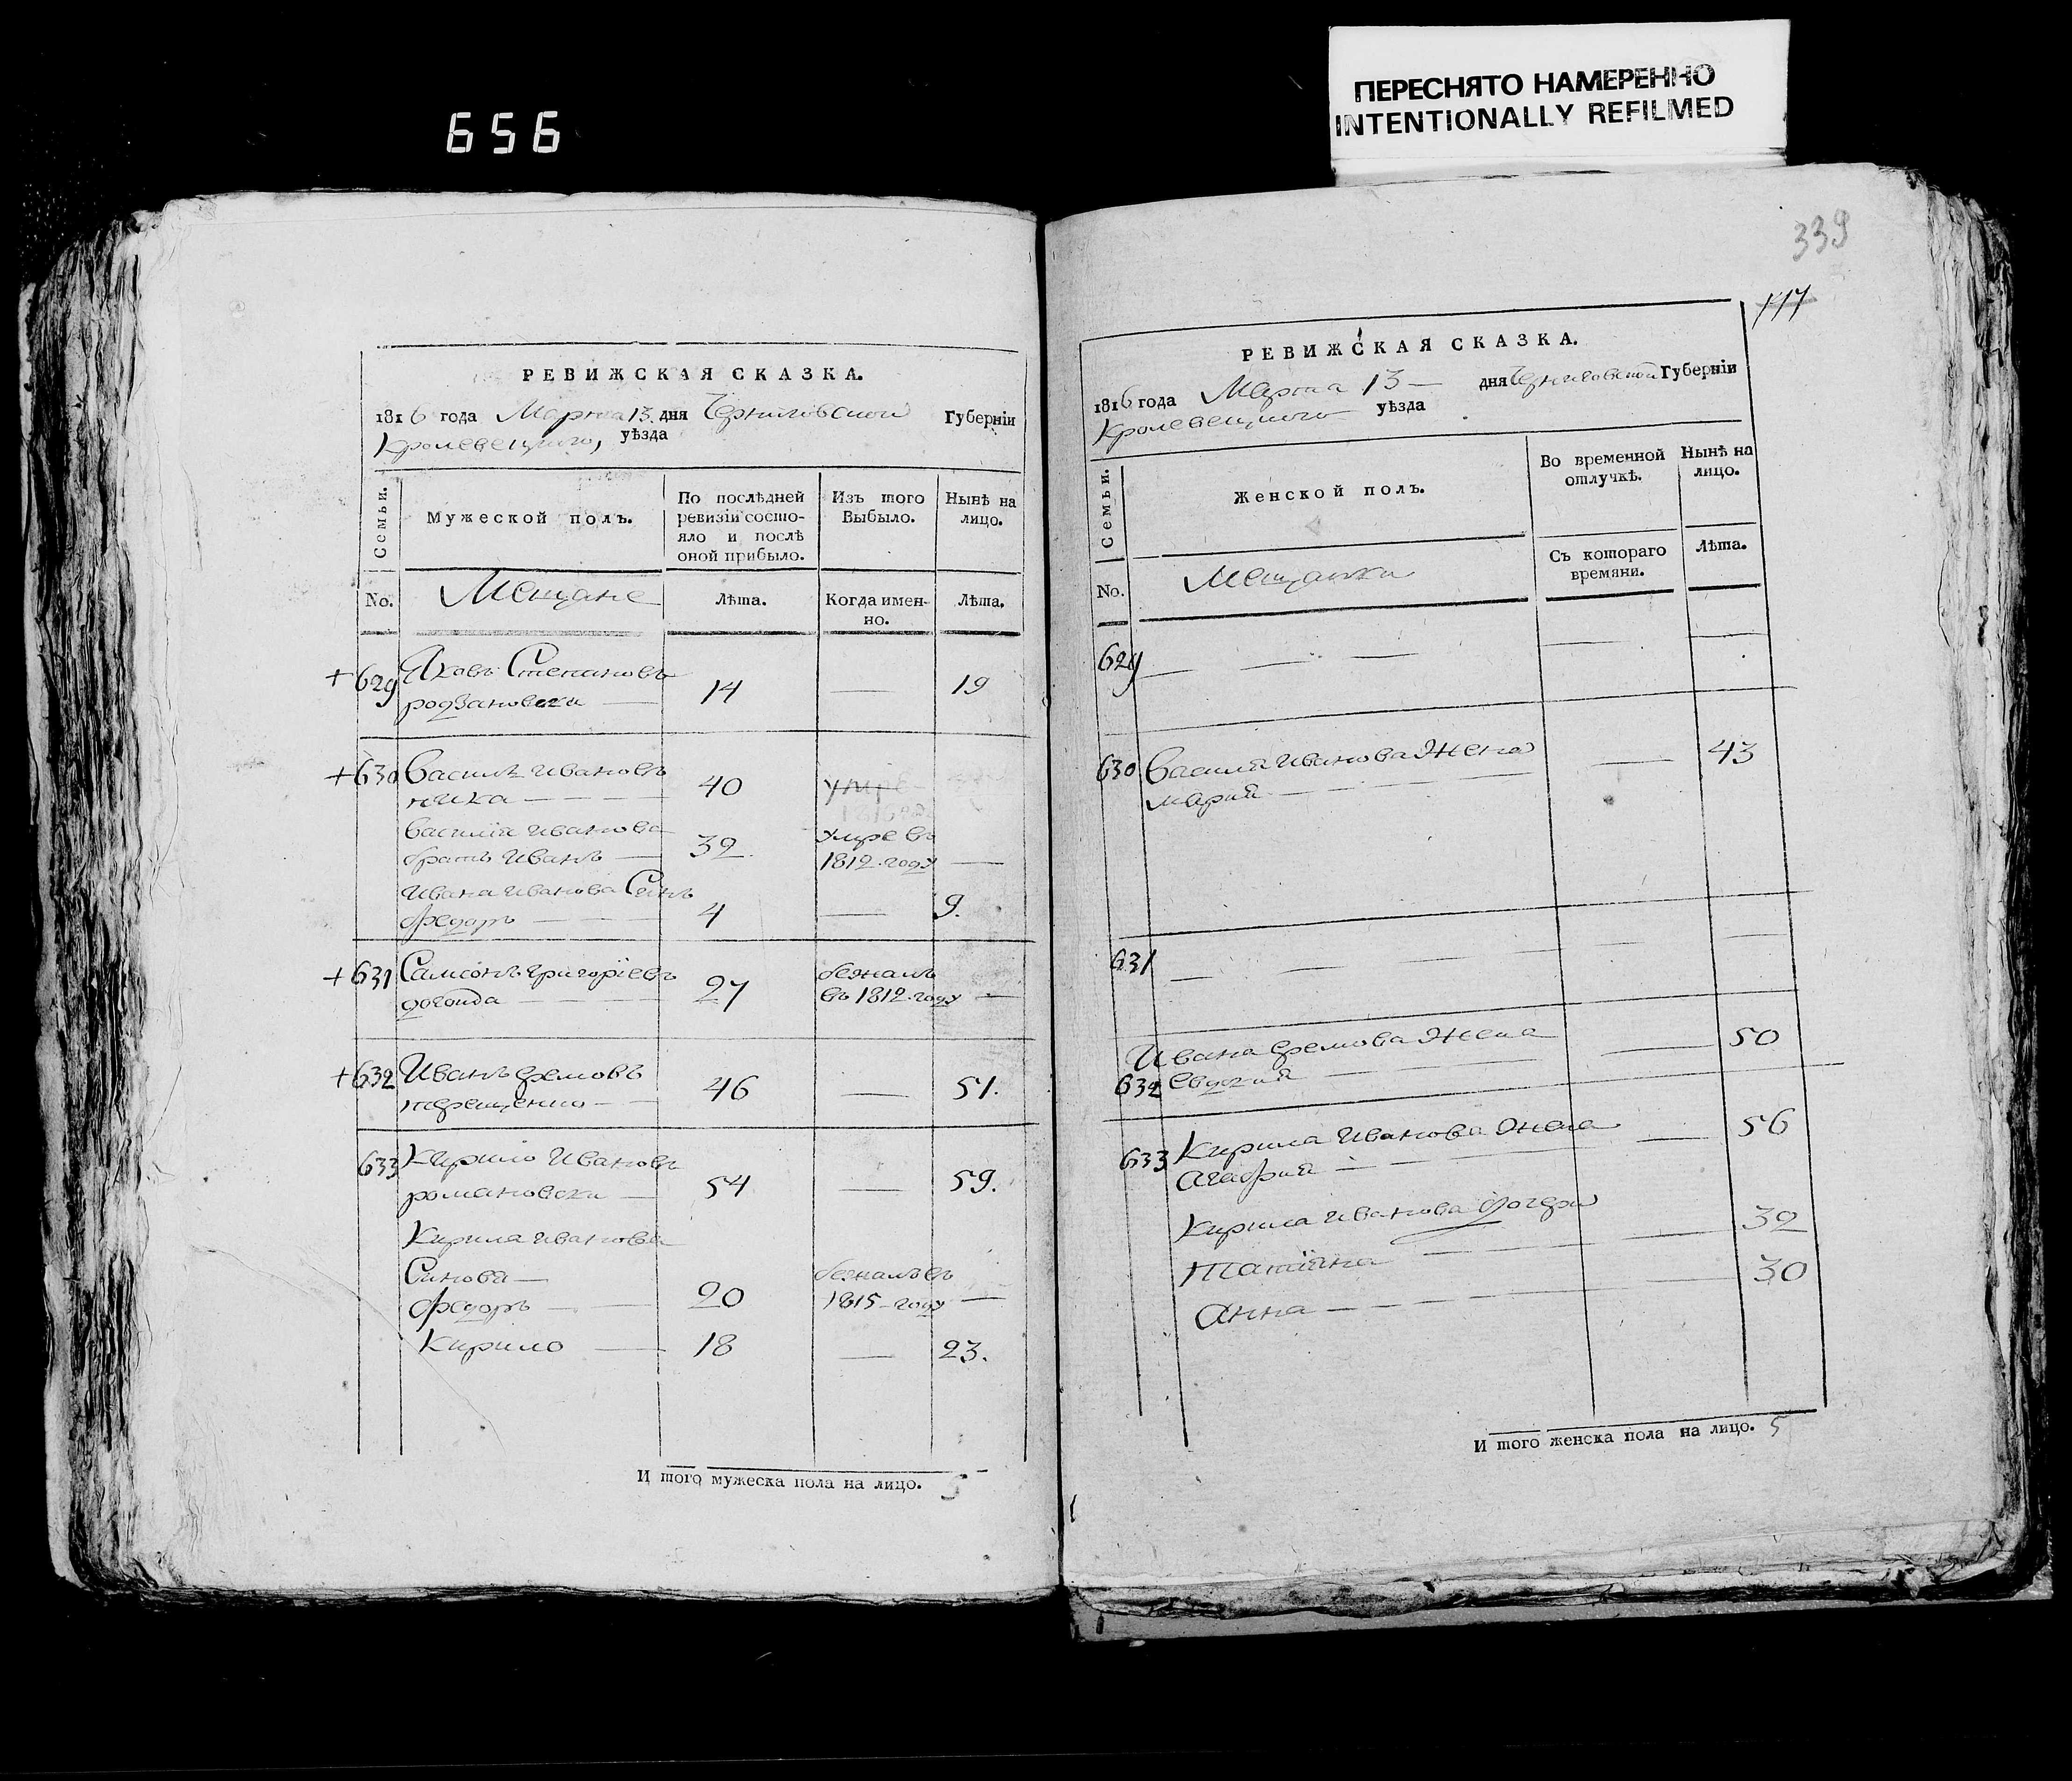 656
ПЕРЕСНЯТО НАМЕРЕННО
INTENTIONALLY REFILMED
РЕВИЖСКАЯ СКАЗКА.
1816 года Марта 13 дня Черниговской Губерніи
Кролевецкого, уѣзда
Семьи.
Мужеской полъ.
По послѣдней
ревизіи состо-
яло и послѣ
оной прибыло.
Изъ того
Выбыло.
Нынѣ на
лицо.
No.
Мещане
Лѣта.
Когда имен-
но.
Лѣта.
+629 Яковъ Степановъ
14 — 19
+630 Василь Ивановъ
40
умре
Василия Иванова
братъ Иванъ — 32. умре въ
1812. году —
Ивана Иванова Синъ
Федоръ — 4 — 9.
+631 Самсонъ Григоріевъ
27
бежалъ
въ 1812. году —
+632 Иванъ Ефремовъ
терещенко — 46 — 51.
633 Кирило Ивановъ
романовски — 54 — 59.
Кирила Иванова
Синовя —
Федоръ — 20 бежалъ въ
1815 - году —
Кирило — 18 — 23.
И того мужеска пола на лицо. 5
339
117
РЕВИЖСКАЯ СКАЗКА.
1816 года Марта 13 — дня Черниговской Губерніи
Кролевецкого уѣзда
Семьи.
Женской полъ.
Во временной
отлучкѣ.
Нынѣ на
лицо.
Съ котораго
времяни.
Лѣта.
No.
Мещанки
629 — — — —
630 Василя Иванова Жена — 43
мария —
631 — — — —
Ивана Ефремова Жена — 50
632 Евдокия —
633 Кирила Иванова Жена — 56
Агафия —
Кирила Иванова дочери
Татияна — 32
Анна — 30
И того женска пола на лицо. 5